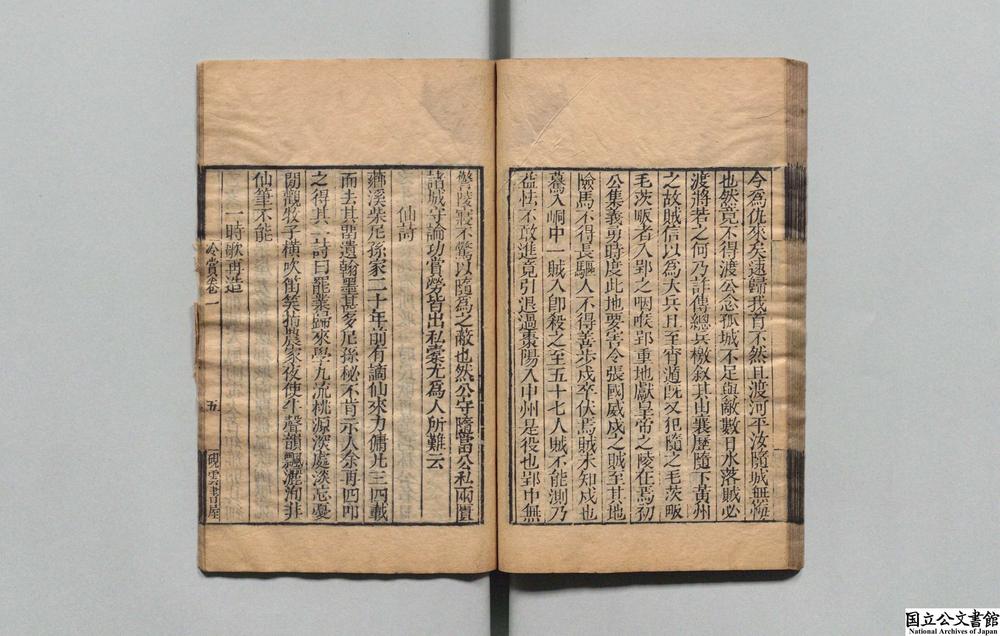 今爲仇來矣速歸我肯不然且渡河平汝隨城無恆
也然竟不得渡公念孤城不足與敵數日水落賊必
渡將若之何乃詐傳總兵檄敘其由襄歷隨下黃州
之故賊信以爲大兵且至宵遁旣又犯隨之毛茨畈
毛茨畈者入郢之咽喉郢重地獻皇帝之陵在焉初
公集義勇時度此地要害令張國威戍之賊至其地
險馬不得長驅人不得善步戍卒伏焉賊未知戍也
驀入峒中一賊入卽殺之至五十七人賊不能測乃
益怯不敢進竟引退過棗陽入申州是役也郢中無
警陵寢不驚以隨爲之蔽也然公守隨當公私兩匱
諸城守論功賞勞皆出私橐尤爲人所難云
仙詩
蘄溪柴尼孫家二十年前有謫仙來力傭此三四載
而去其畱遺翰墨甚多尼孫秘不肯示人余再四叩
之得其二詩曰罷業歸來學九流桃源深處淡忘憂
閒觀牧子橫吹笛笑指農家夜使牛聲韻飄灑洵非
仙筆不能
一時歌再造
冷賞卷一
五
硯雲書屋
国立公文書館
National Archives of Japan